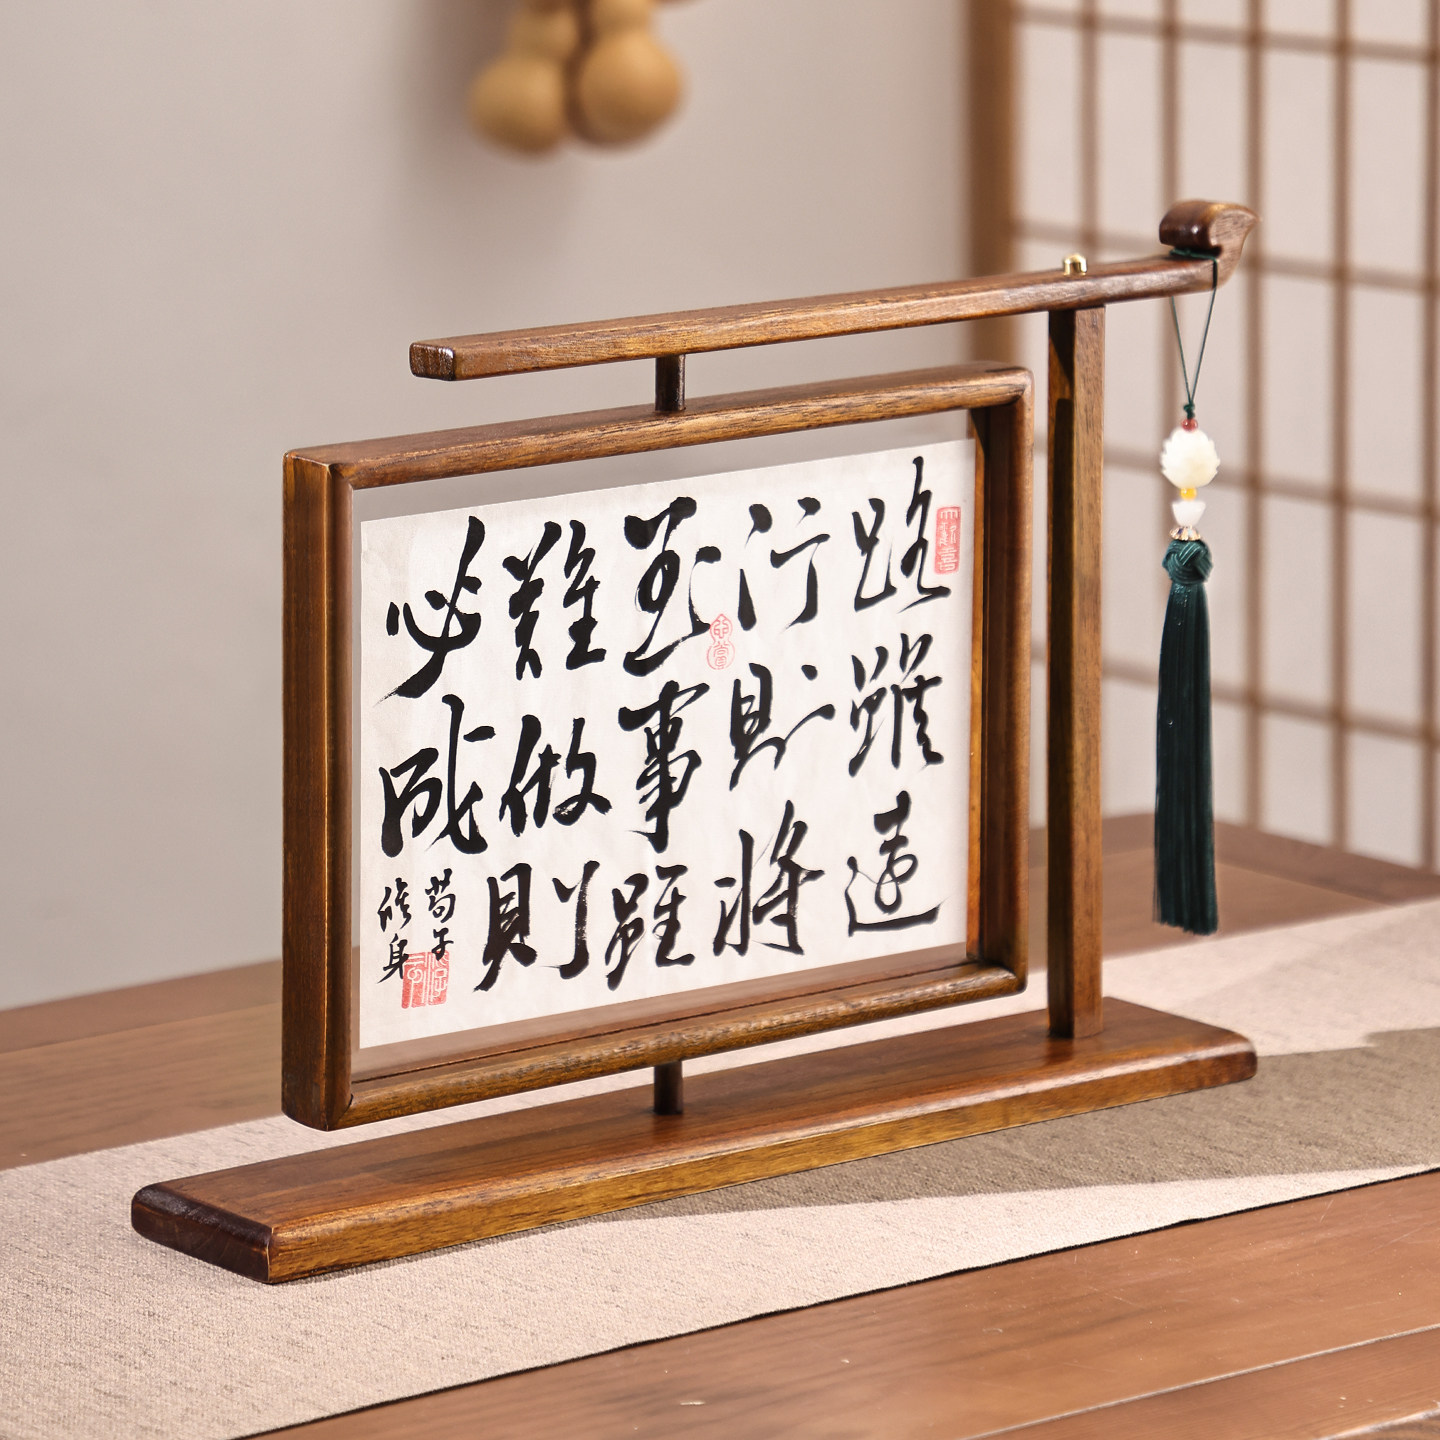 路雖遠
行則將
至事雖
難做則
必成
荀子
修身